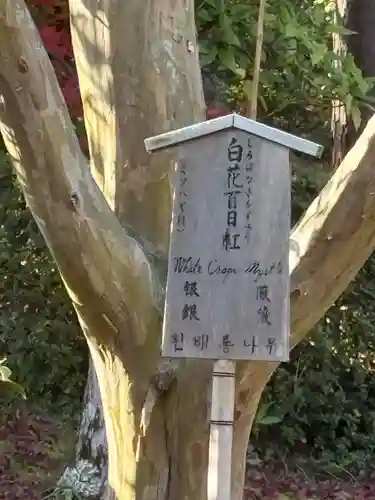 白花百日紅
しろばなさるすべり
(ミソハギ科)
White Crape Myrtle
银薇
銀薇
흰배롱나무